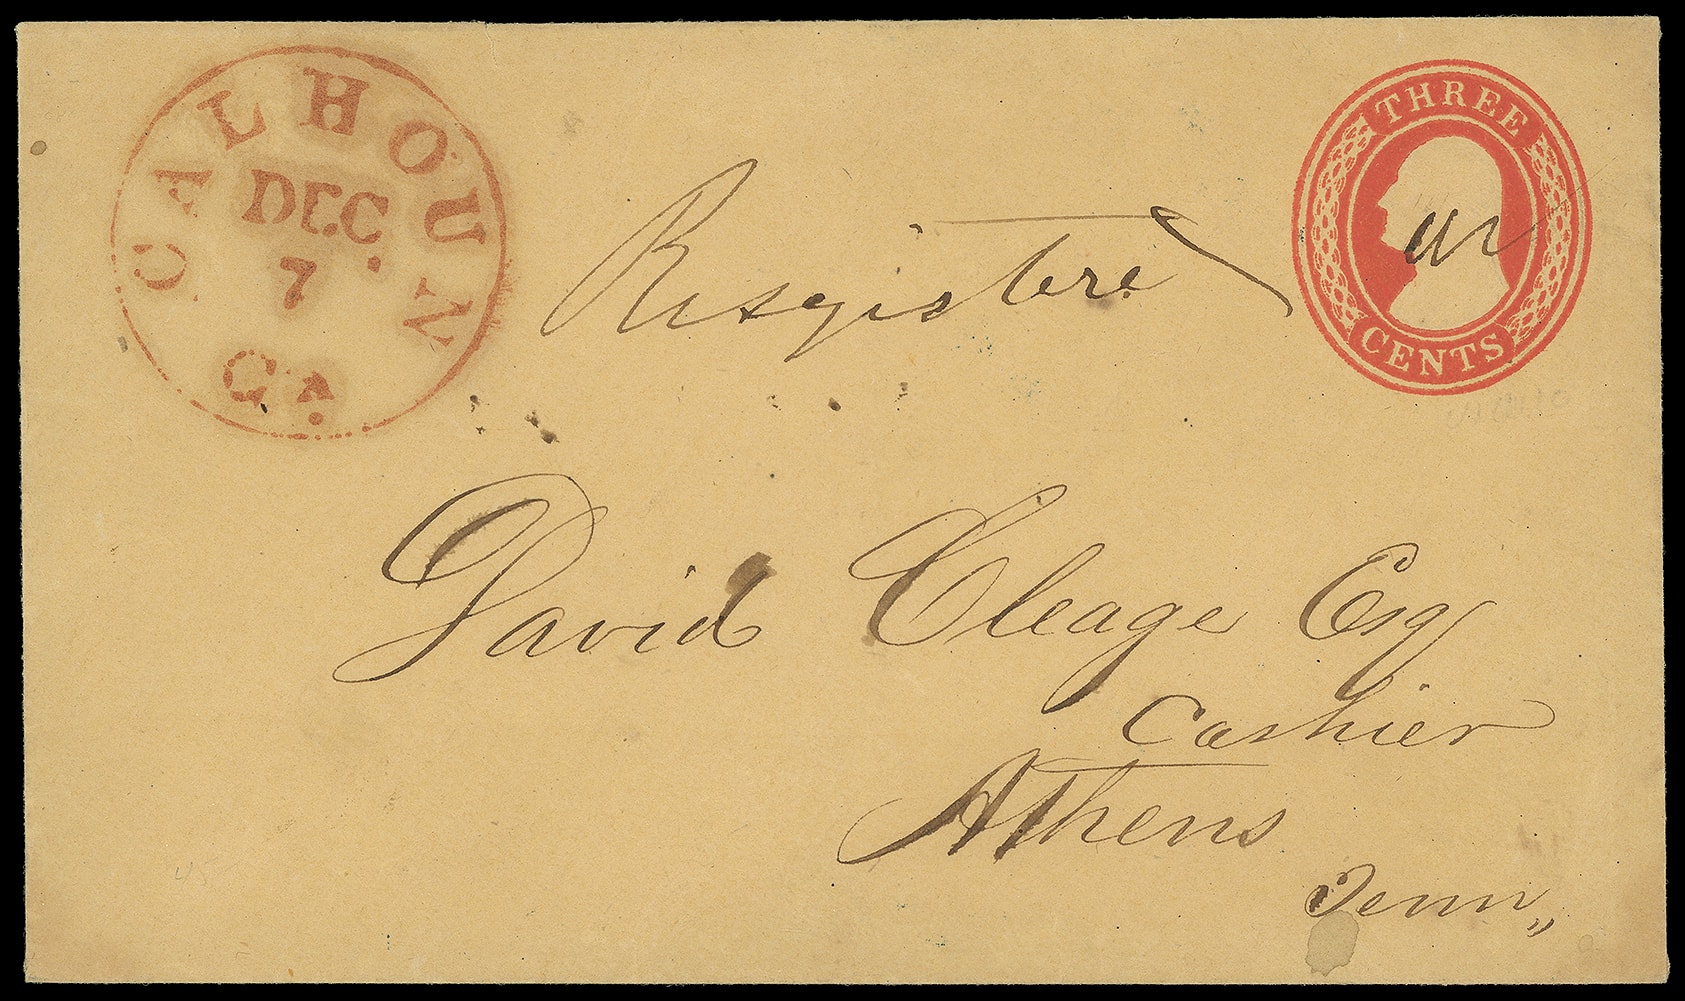 CALHOUN
DEC.
7
GA.
THREE
CENTS
Resgistere
David Cleage Esq
Cashier
Athens
Tenn